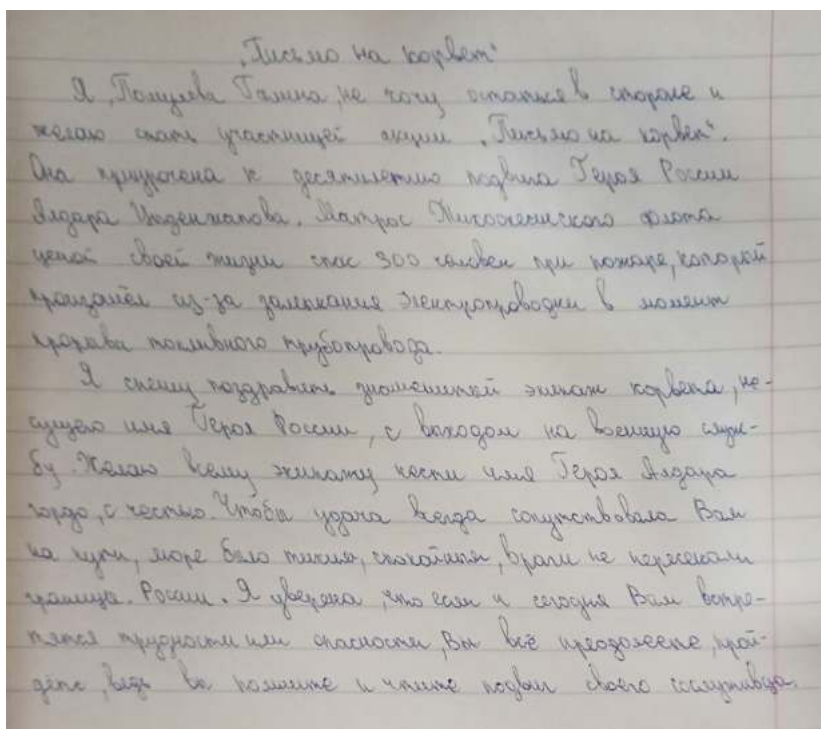 „Письмо на корвет"
Я, Полуева Галина, не хочу остаться в стороне и
желаю стать участницей акции „Письмо на корвет".
Она приурочена к десятилетию подвига Героя России
Алдара Цыденжапова. Матрос Тихоокеанского флота
ценой своей жизни спас 300 человек при пожаре, который
произошёл из-за замыкания электропроводки в момент
прорыва топливного трубопровода.
Я спешу поздравить знаменитый экипаж корвета, не-
сущего имя Героя России, с выходом на военную служ-
бу. Желаю всему экипажу нести имя Героя Алдара
гордо, с честью. Чтобы удача всегда сопутствовала Вам
на пути, море было тихим, спокойным, враги не пересекали
границы России. Я уверена, что если и сегодня Вам встре-
тятся трудности или опасности, Вы всё преодолеете, прой-
дёте, ведь вы помните и чтите подвиг своего сослуживца.